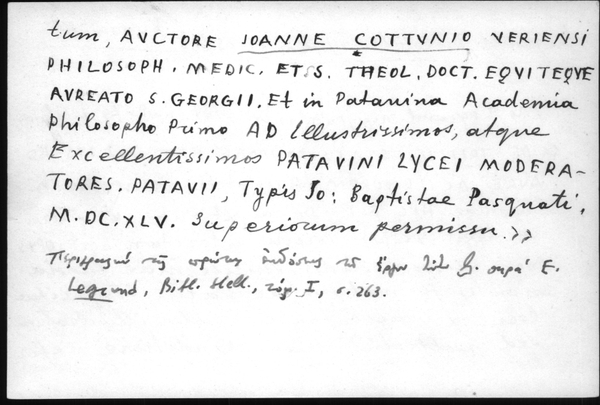 tum, AVCTORE JOANNE COTTVNIO VERIENSI
PHILOSOPH. MEDIC. ET S. THEOL. DOCT. EQVITEQVE
AVREATO S. GEORGII. Et in Patavina Academia
Philosopho Primo AD Illustrissimos, atque
Excellentissimos PATAVINI LYCEI MODERA-
TORES. PATAVII, Typis Jo: Baptistae Pasquati,
M.DC.XLV. Superiorum permissu.»
Περιγραφὴ τῆς πρώτης ἐκδόσεως τοῦ ἔργου παρὰ E.
Legrand, Bibl. Hell., τόμ. I, σ. 263.